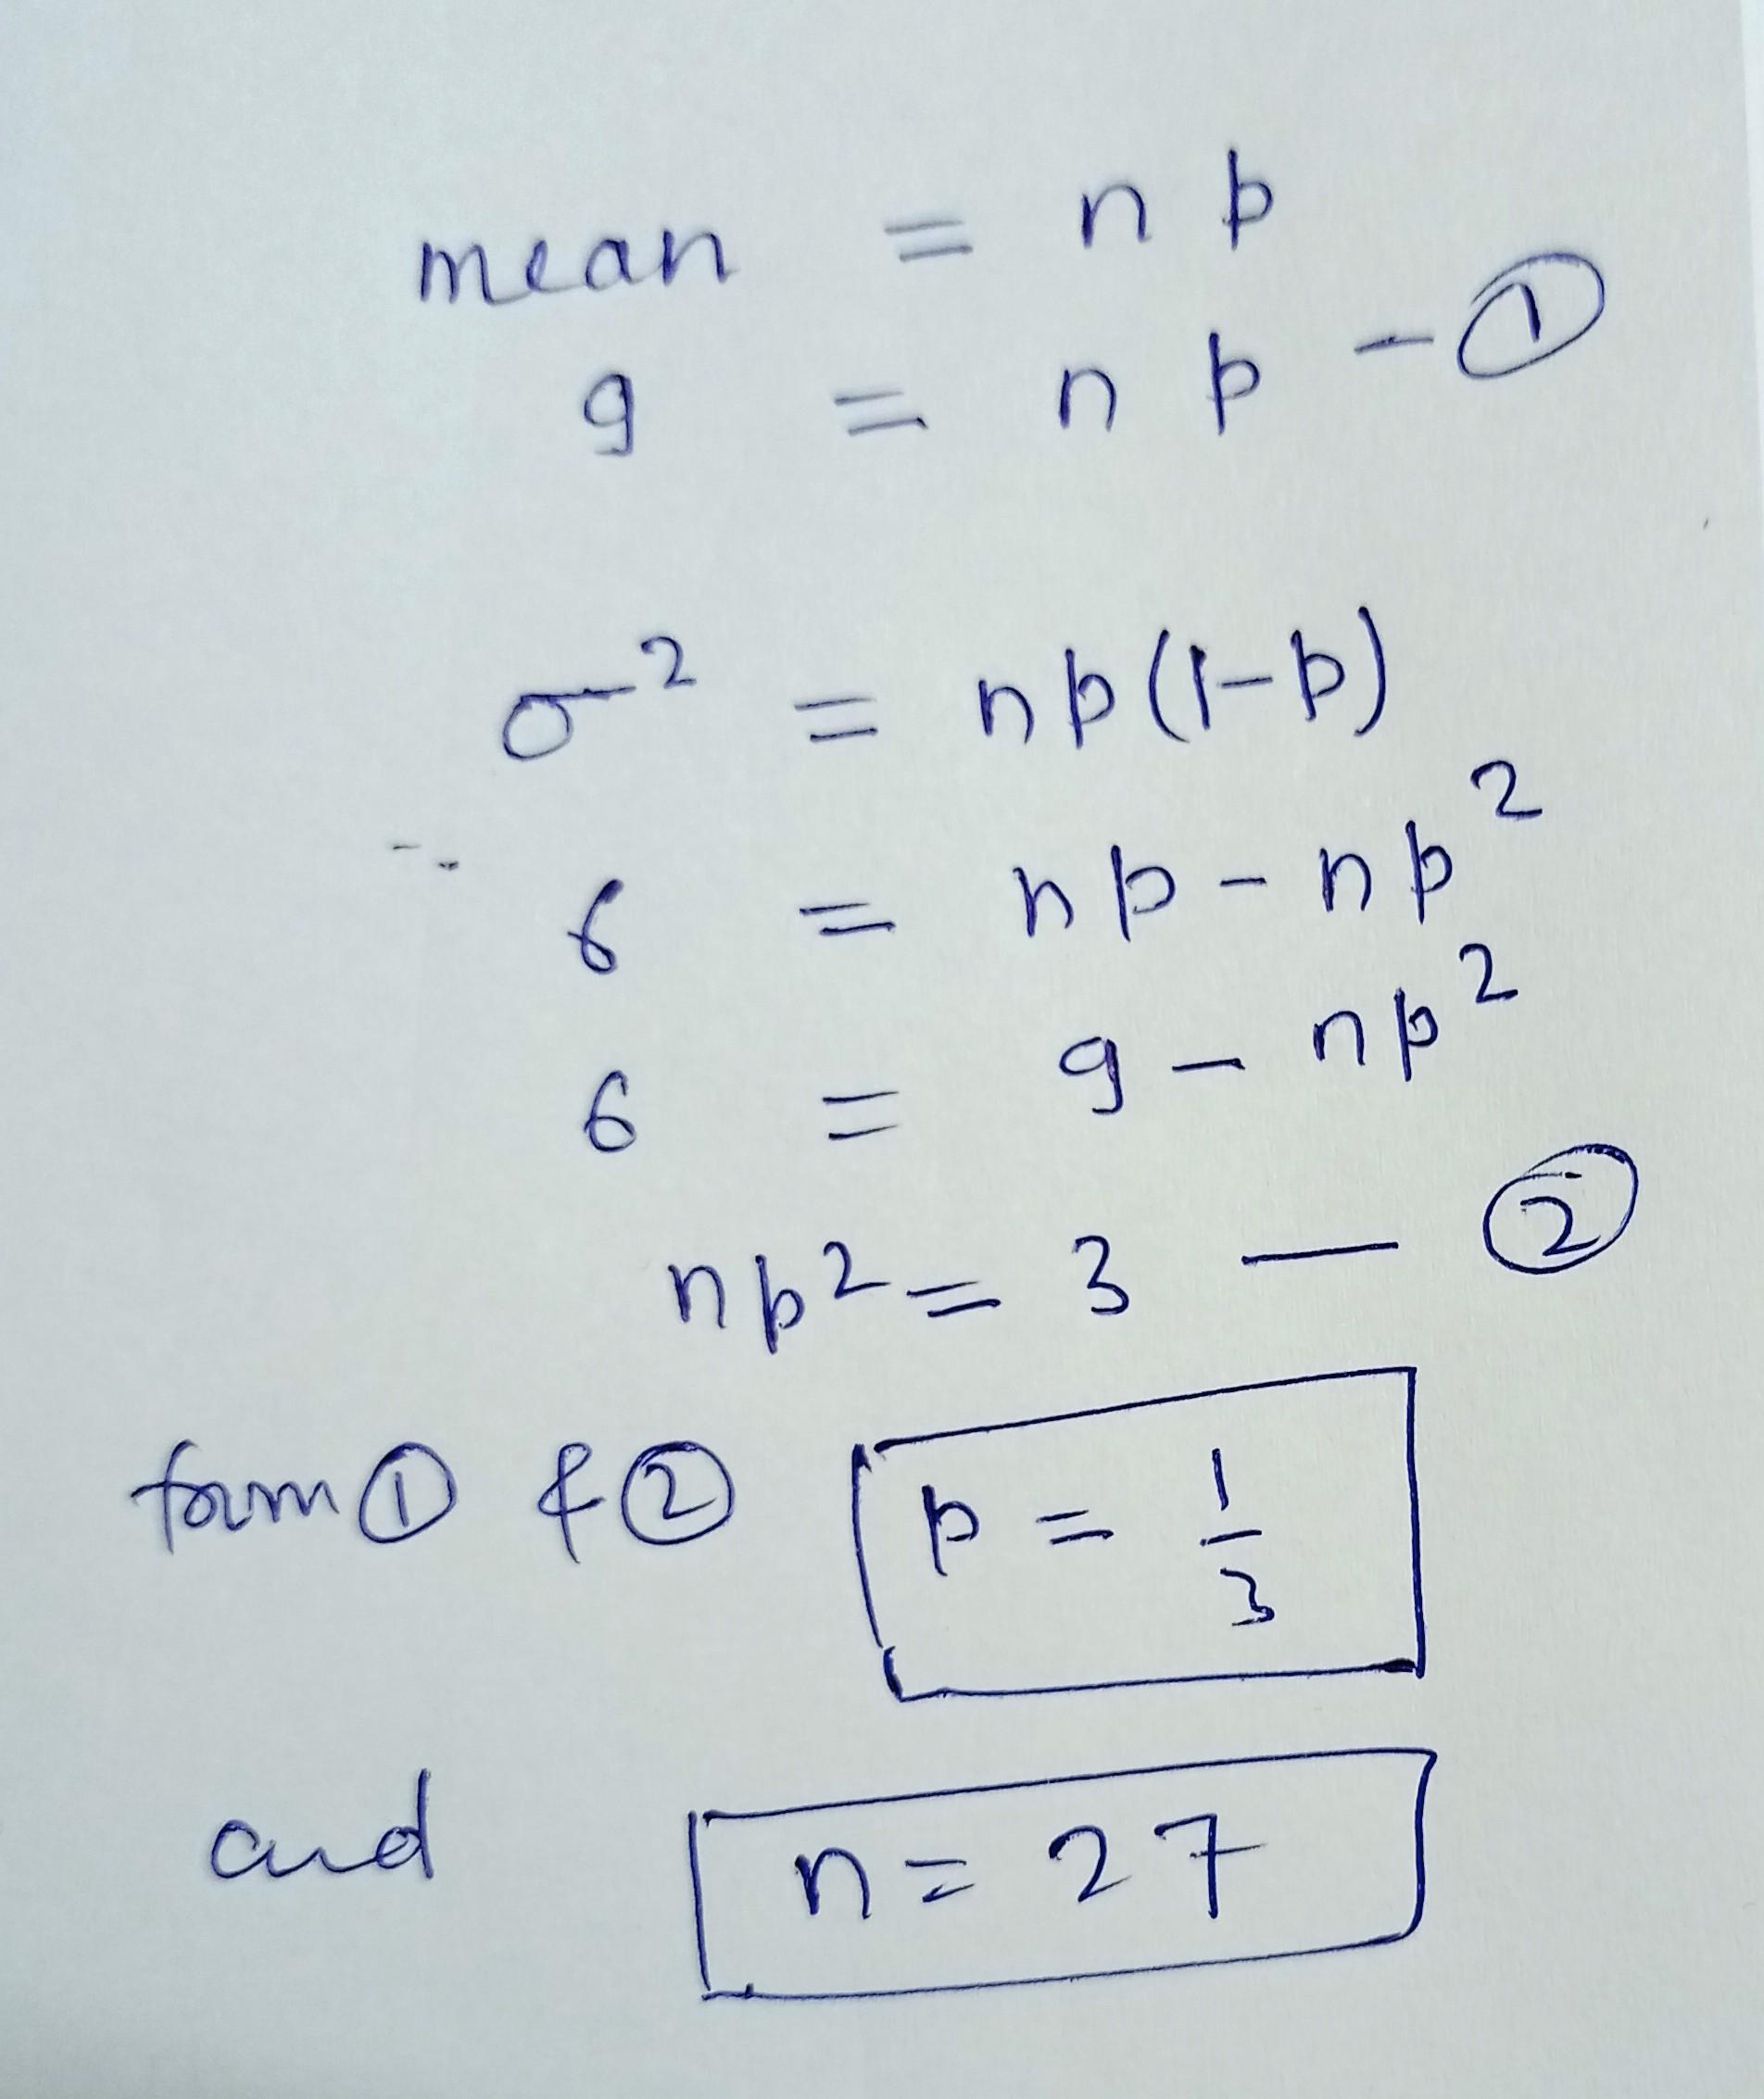 mean = np
9 = np - ①
σ² = np(1-p)
6 = np - np²
6 = 9 - np²
np² = 3 — ②
form ① & ② p = 1/3
and n = 27